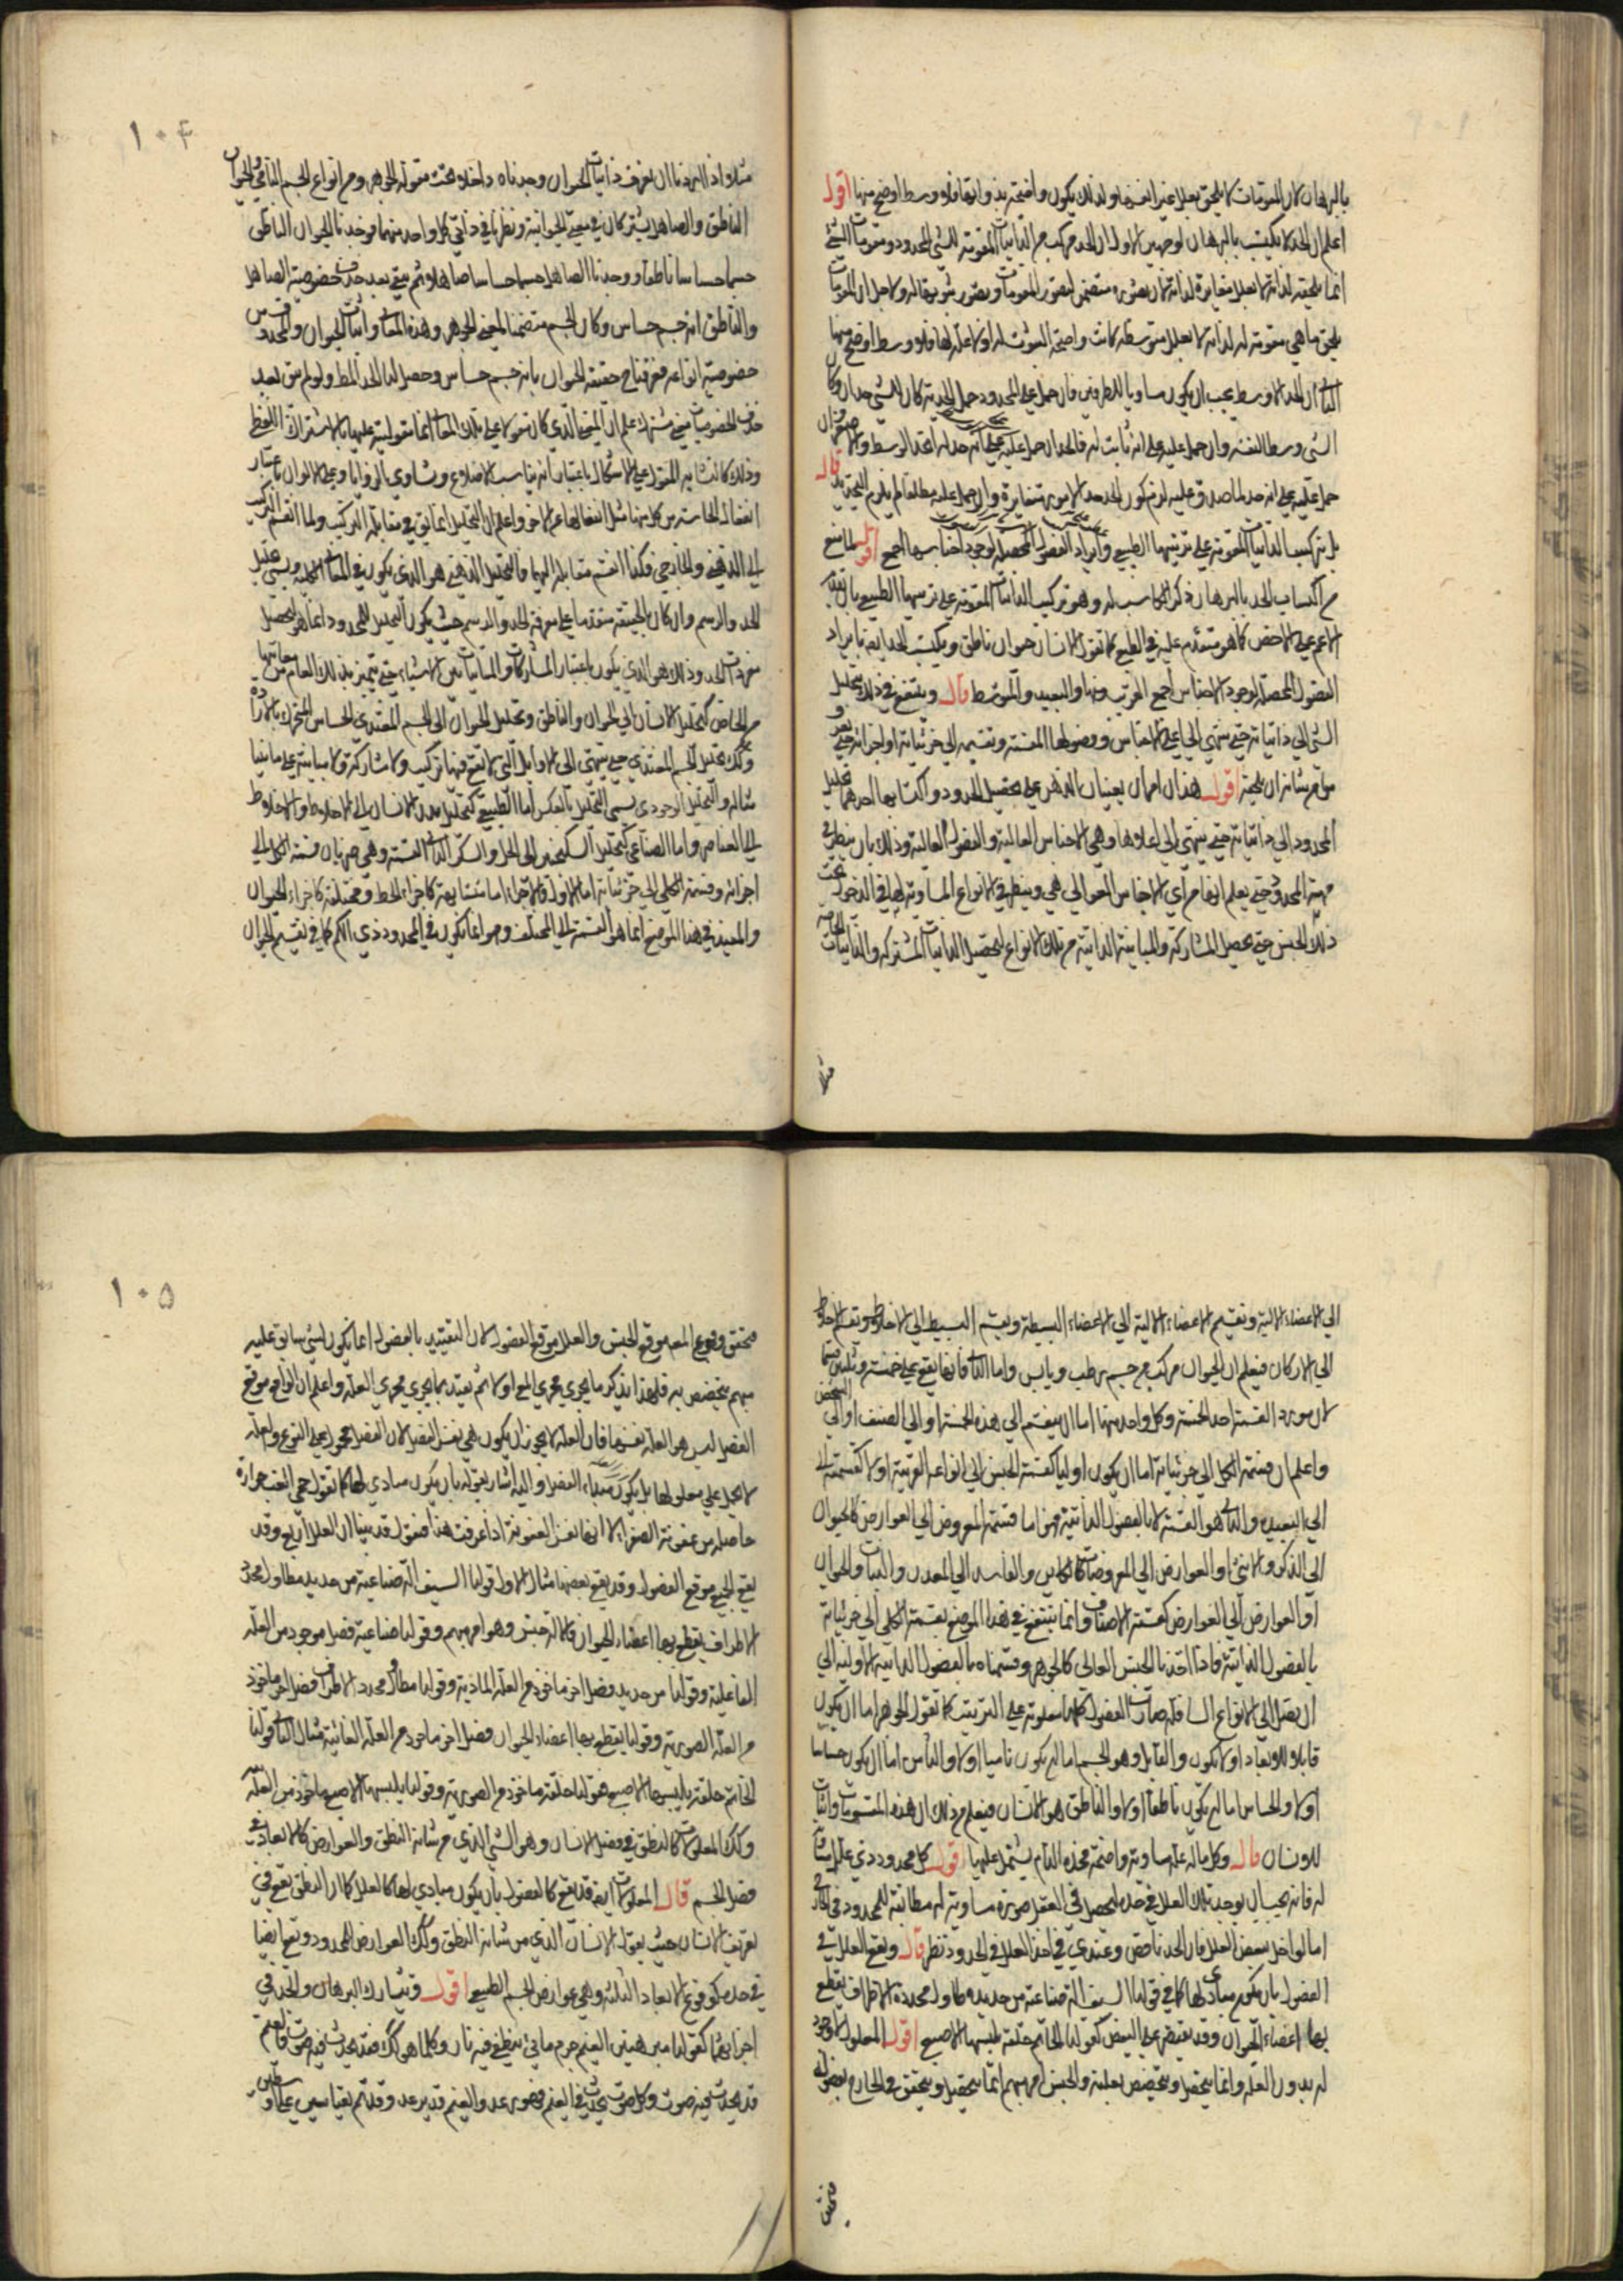 بالبرهان لان المقومات لا يلحق بعلل غير انفسها ولذلك يكون واضحة بذواتها فلا وسط اوضح منها اقول
اعلم ان الحد لا يكتسب بالبرهان لوجهين الاول ان الحد مركب من الذاتيات المقومة للشيء المحدود ومقومات الشيء
انما يلحقه لذاته لا بعلل مغايرة لذاته فان تصوره متضمن لتصور المقومات
يلحق ما هي مقومة له لذاته لا بعلل متوسطة كانت واضحة الثبوت له اذ لا علة لها فلا وسط اوضح منها
الثاني ان الحد الاوسط يجب ان يكون مساويا للطرفين فان حمل على المحدود حمل الحدية كان للشيء حدان وكان
الشيء وسطا لنفسه وان حمل عليه على انه ثابت له
حمل عليه على انه حد لما صدق عليه لزم كون الحد حدا لامور متغايرة وان حمل عليه مطلقا لم يلزم التحديد قال
بل بتركيب الذاتيات المقومة على ترتيبها الطبيعي وايراد الفصول المحصلة لوجود اجناسها اجمع اقول لما منع
من اكتساب الحد بالبرهان ذكر الكاسب له وهو تركيب الذاتيات المقومة على ترتيبها الطبيعي بان يقدم
الاعم على الاخص كما هو متقدم عليه في الطبع كما تقول الانسان حيوان ناطق ويكتسب الحد ايضا بايراد
الفصول المحصلة لوجود الاجناس اجمع القريب منها والبعيد والمتوسط قال وينتفع في ذلك بتحليل
الشيء الى ذاتياته حتى ينتهي الى اعلى الاجناس وفصولها المقسمة وتقسيمه الى جزئياته او اجزائه حتى
من شانه ان يلحقه اقول هذان امران يعينان الذهن على تحصيل الحدود واكتسابها احدهما تحليل
المحدود الى ذاتياته حتى ينتهي الى اعلاها وهي الاجناس العالية والفصول العالية وذلك بان ينظر في
مهية المحدود حتى يعلم انها من اي الاجناس العوالي هي وينظر في الانواع المساوية لها في الدخول تحت
ذلك الجنس حتى يحصل المشاركة والمباينة الذاتية من تلك الانواع لتحصيل الذاتيات المشتركة والذاتيات الخاصة
مثلا
١٠٤
مثلا اذا اردنا ان نعرف ذاتيات الحيوان وجدناه داخلا تحت مقولة الجوهر ومن انواع الجسم النامي والحيوان
الناطق والصاهل يشتركان في معنى الحيوانية ونظرنا في ذاتي كل واحد منهما فوجدنا الحيوان الناطق
جسما حساسا ناطقا ووجدنا الصاهل جسما حساسا صاهلا ثم بقي بعد حذف خصوصية الصاهل
والناطق انه جسم حساس وكان الجسم متضمنا لمعنى الجوهر وهذه المعاني ذاتيات الحيوان
خصوصية انواعه فعرفنا حقيقة الحيوان بانه جسم حساس وحصل لنا الحد المط ولو لم يبق بعد
حذف الخصوصيات معنى مشترك علم ان المعنى الذي كان مقولا على تلك المعاني انما مقوليته عليها بالاشتراك اللفظي
وذلك كالتشابه المقول على الاشكال باعتبار انه تناسب الاضلاع وتساوي الزوايا وعلى الالوان باعتبار
انفعال الحاسة من كل منها مثل انفعالها عن الاخر واعلم ان التحليل انما يقع في مقابلة التركيب ولما انقسم التركيب
الى الذهني والخارجي فكذا انقسم مقابله اليهما فالتحليل الذهني هو الذي يكون في المعاني
الحد والرسم وان كان بالحقيقة متقدما على معرفة الحد والرسم حيث يكون التحليل للمحدود انما هو لتحصيل
مفردات الحد وذلك هو الذي يكون باعتبار المشاركات والمباينات بين الاشياء حتى يتميز بذلك العام
من الخاص كتحليل الانسان الى الحيوان والناطق وتحليل الحيوان الى الجسم المغتذي الحساس المتحرك بالارادة
وكذلك تحليل الجسم المغتذي حتى ينتهي الى الاوائل التي لا يقع فيها تركيب ولا مشاركة ولا مباينة
مثاله والتحليل الوجودي يسمى التحليل بالعكس اما الطبيعي كتحليل بدن الانسان الى الاخلاط والاخلاط
الى العناصر واما الصناعي كتحليل السكنجبين الى الخل والسكر الثاني القسمة وهي ضربان قسمة الكل الى
اجزائه وقسمة الكلي الى جزئياته اما الاول فالاجزاء اما متشابهة كاجزاء الخط او مختلفة كاجزاء الحيوان
والمفيد في هذا الموضع انما هو القسمة الى المختلف وهو انما يكون في المحدود ذي الكم كما في تقسيم الحيوان
الى الاعضاء الالية وتقسيم الاعضاء الالية الى الاعضاء البسيطة وتقسيم البسيط الى الاخلاط وتقسيم الاخلاط
الى الاركان فيعلم ان الحيوان مركب من جسم رطب ويابس واما الثاني فانها تقع على خمسة وثلثين قسما
لان مورد القسمة احد الخمسة وكل واحد منها اما ان ينقسم الى هذه الخمسة او الى الصنف او الى الشخص
واعلم ان قسمة الكلي الى جزئياته اما ان يكون اوليا كقسمة الجنس الى انواعه القريبة او لا كقسمته الى
البعيدة والثاني هو القسمة لا بالفصول الذاتية فهي اما قسمة المعروض الى العوارض كالحيوان
الى الذكر والانثى او العوارض الى المعروضات كالكاين والفاسد الى المعدن والنبات والحيوان
او العوارض الى العوارض كقسمة الاصناف وانما ينتفع في هذا الموضع بقسمة الكلي الى جزئياته
بالفصول الذاتية فاذا اخذنا الجنس العالي كالجوهر وقسمناه بالفصول الذاتية الاولية الى
ان يصل الى الانواع السافلة صارت الفصول كلها معلومة على الترتيب كما تقول الجوهر اما ان يكون
قابلا للابعاد او لا يكون والقابل وهو الجسم اما ان يكون ناميا او لا والنامي اما ان يكون حساسا
او لا والحساس اما ان يكون ناطقا او لا والناطق هو الانسان فيعلم من ذلك ان هذه المقسومات ذاتيات
للانسان قال وكل ماله علة مساوية واضحة فحده التام يشتمل عليها اقول كل محدود ذي علة
له فانه يجب ان يوجد تلك العلل في حده ليحصل في العقل صورة مساوية له مطابقة للمحدود في الخارج
اما لو اخل ببعض العلل فان الحد ناقص وعندي في اخذ العلل في الحدود نظر قال وتقع العلل في
الفصول بان يكون مبادي لها كما في قولنا السيف الة صناعية من حديد مطاول محددة الاطراف يقطع
بها اعضاء الحيوان وقد يقتصر على البعض كقولنا الخاتم حلقة يلبسها الاصبع اقول المعلول لا وجود
له بدون العلة وانما يتحصل ويتخصص بعلته والجنس امر مبهم انما يتحصل ويتحقق في الخارج بفصوله
فتحقق
١٠٥
فتحقق وقوع المعلول موقع الجنس والعلل موقع الفصول لان التقييد بالفصول انما يكون لشيء سابق عليه
مبهم يتخصص به فلهذا يذكر ما يجري مجرى المع اولا ثم يقيد بما يجري مجرى العلة واعلم ان الواقع موقع
الفصل ليس هو العلة نفسها فان العلة لا يجوز ان يكون هي نفس الفصل لان الفصل محمول على النوع والعلة
لا يحمل على معلولها بل يكون مبداء الفصل واليه اشار بقوله بان يكون مبادي لها كما تقول حمى الغب حرارة
حاصلة من عفونة الصفراء لا انها نفس العفونة اذا عرفت هذا فنقول قد بينا ان العلل اربع وقد
يقع الجميع موقع الفصول وقد يقع بعضها مثال الاول قولنا السيف الة صناعية من حديد مطاول محدد
الاطراف يقطع بها اعضاء الحيوان فالالة جنس وهو امر مبهم وقولنا صناعية فصل موجود من العلة
الفاعلية وقولنا من حديد فصل اخر ماخوذ من العلة المادية وقولنا مطاول محدد الاطراف فصل اخر ماخوذ
من العلة الصورية وقولنا يقطع بها اعضاء الحيوان فصل اخر ماخوذ من العلة الغائية مثال الثاني قولنا
الخاتم حلقة يلبسها الاصبع فقولنا حلقة ماخوذ من الصورية وقولنا يلبسها الاصبع ماخوذ من العلة
وكذلك المعلولات كالنطق في فصل الانسان وهو الشيء الذي من شانه النطق والعوارض كالابعاد في
فصل الجسم قال المعلولات ايضا قد تقع كالفصول بان يكون مبادي لها كالعلل كما ان النطق يقع في
تعريف الانسان حيث يقول الانسان الذي من شانه النطق وكذلك العوارض للمحدود وتقع ايضا
في حده كوقوع الابعاد الثلثة وهي عوارض الجسم الطبيعي اقول وتشارك البرهان والحد في
اجزائهما كقولنا مبرهنين الغيم جرم مائي ينطفي فيه نار وكلما هو كذلك فقد يحدث فيه صوت فالغيم
قد يحدث فيه صوت وكل صوت يحدث في الغيم فهو رعد والغيم قد يرعد وقد تم بقياسين على